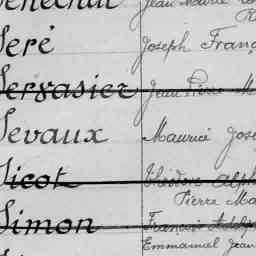 Sénéchal Jean Marie
Seré Joseph Franç
Servasier Jean Pierre M
Sevaux Maurice Jose
Sicot Théodore Alph
Pierre Ma
Simon François Adolp
Emmanuel Jean